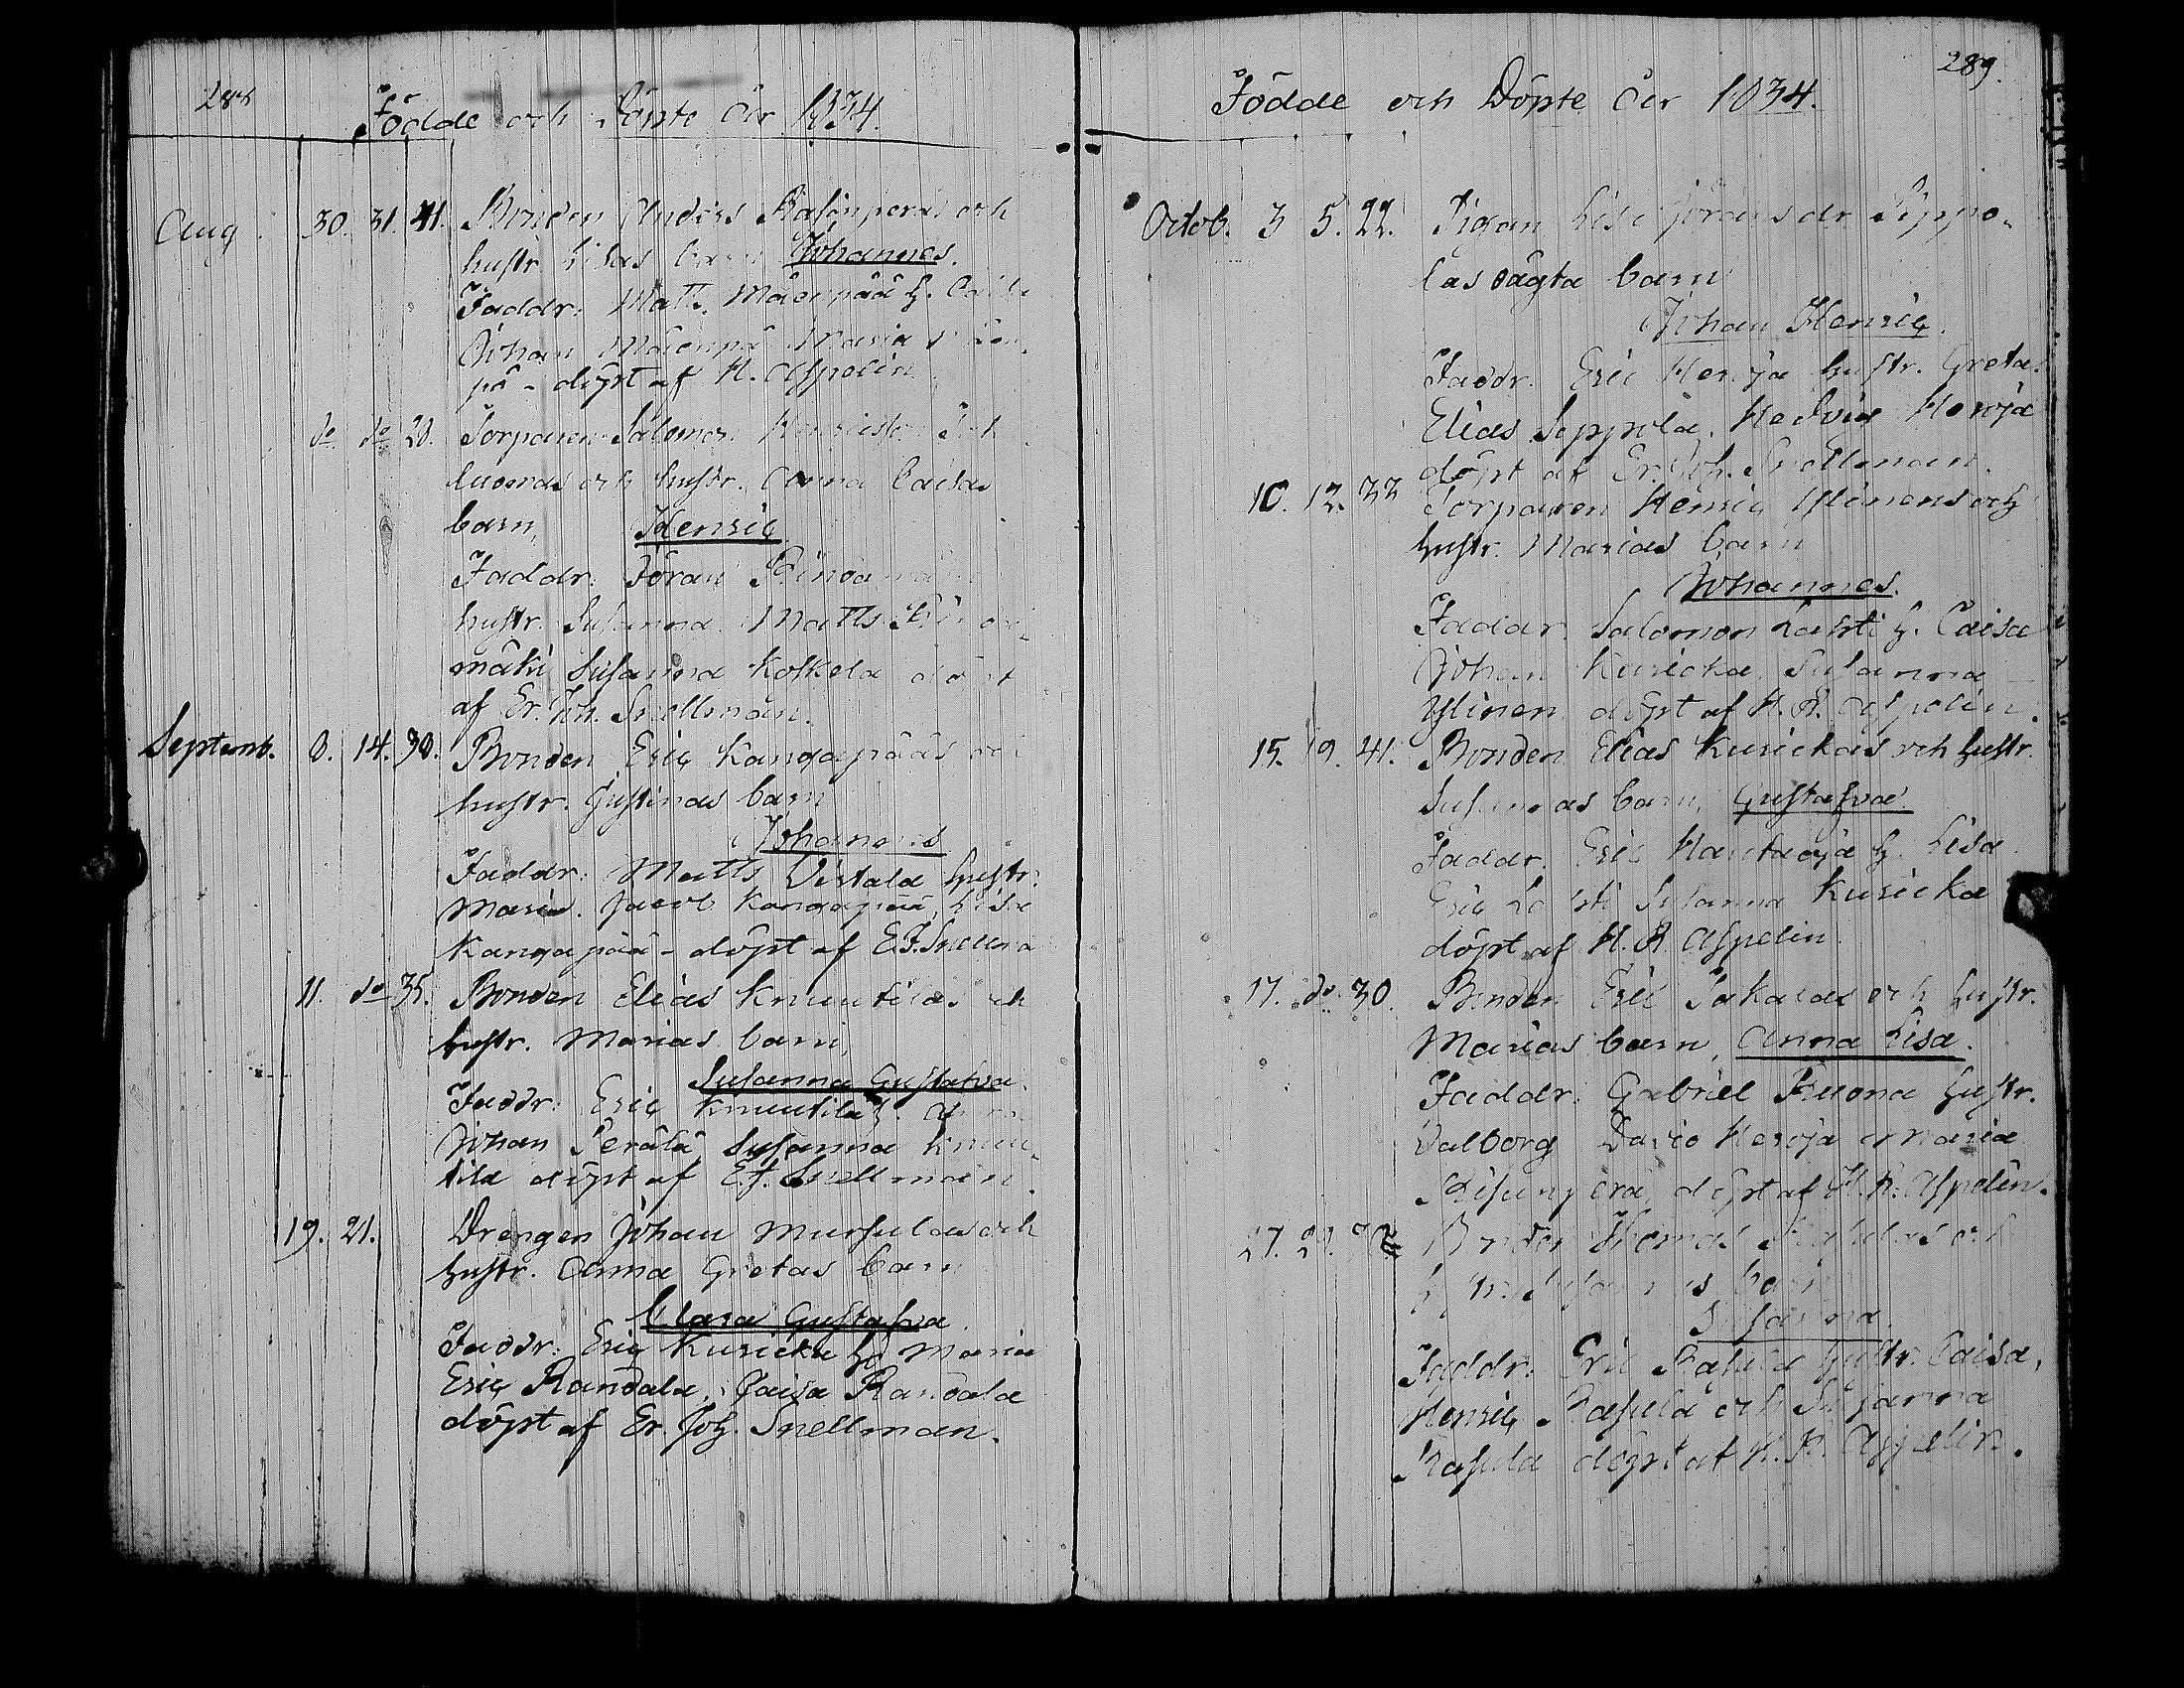 288
Födde och Döpte År 1834.
Aug. 30. 31. 41. Bonden Anders och
hustr. Lisas barn Johannes.
Faddr: Matts. Mäenpää h. Caisa
Johan Mäenpä Maria
pä - döpt af H. Aspelin
do do 28. Torparen Salomon
luomas och hustr. Anna Caisas
barn, Henric
Faddr: Jöran
hustr. Susanna. Matts
mäki Susanna Koskela döpt
af Er. Joh. Snellman.
Septemb. 8. 14. 30. Bonden Eric Kangapääs och
hustr. Justinas barn
Johannes
Faddr: Matts Viitala hustr.
Maria. Jacob Kangapää, Lisa
Kangapää - döpt af E.J. Snellma
11. do 35. Bonden Elias Knuutilas och
hustr. Marias barn,
Susanna Gustafva.
Faddr: Eric Knuutila h.
Johan Perälä Susanna Knuu-
tila döpt af E.J. Snellman.
19. 21. Drengen Johan Mursulas och
hustr. Anna Gretas barn
Clara Gustafva.
Faddr: Eric Kuricka h. Maria
Eric Randala, Caisa Randala
döpt af Er. Joh. Snellman.
289.
Födde och Döpte År 1834.
Octob. 3 5. 22. Pigan Lisa Göransdr Seppo-
las oägta barn
Johan Henric.
Faddr. Eric Heroja hustr. Greta.
Elias Seppola. Hedvig Heroja
döpt af Er. Joh. Snellman.
10. 12. 33 Torparen Henric Ylinens och
hustr. Marias barn
Johannes.
Faddr. Salomon Lahti h. Caisa
Johan Kuricka Susanna
Ylinen döpt af H. R. Aspelin.
15. 19. 41. Bonden Elias Kurickas och hustr.
Susannas barn, Gustafva
Faddr. Eric Hautaoja h. Lisa
Eric Lahti Susanna Kuricka
döpt af H. R. Aspelin.
17. do 30. Bonden Eric Jakalas och hustr.
Marias barn, Anna Lisa.
Faddr: Gabriel Fuona hustr.
Valborg David Heroja Maria
döpt af H. R. Aspelin.
27. 29. Bonden Thomas Rasulas och
hustr. Susannas barn
Susanna.
Faddr. Eric Rasula hustr. Caisa,
Henric Rasula och Susanna
Rasula döpt af H. R. Aspelin.